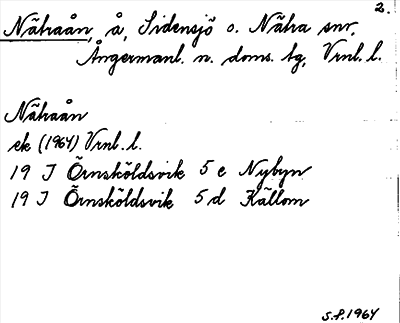 2.
Nätraån, å, Sidensjö o. Nätra snr,
Ångermanl. n. doms. tg, Vrnl. l.
Nätraån
ek (1964) Vrnl. l.
19 J Örnsköldsvik 5 e Nybyn
19 J Örnsköldsvik 5 d Källom
S.P. 1964